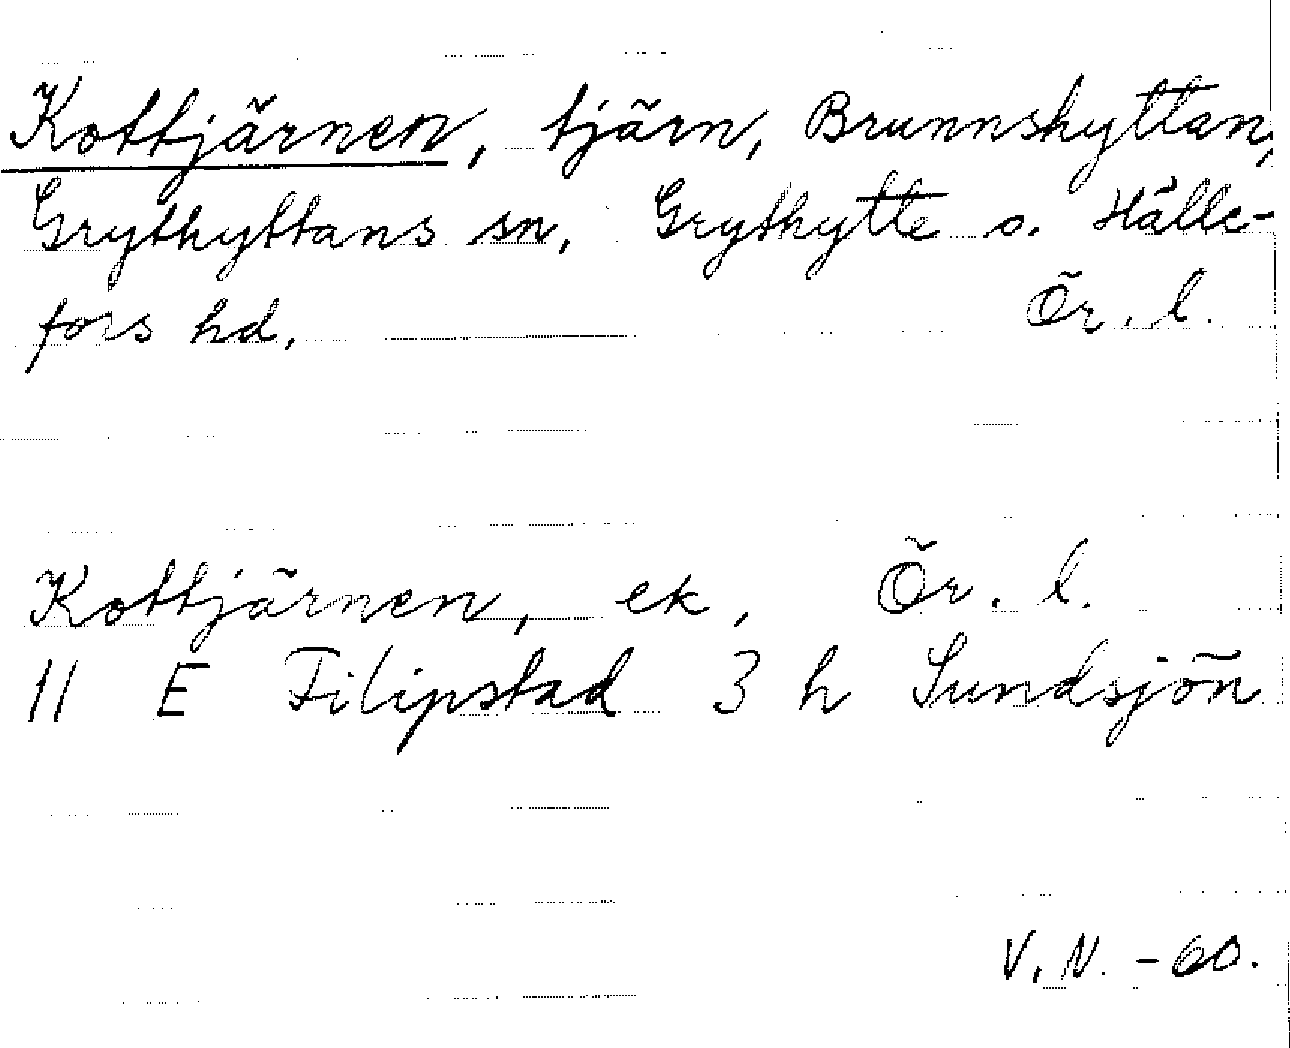 Kottjärnen, tjärn, Brunnshyttan,
Grythyttans sn, Grythytte o. Hälle-
fors hd. Ör. l.
Kottjärnen, ek, Ör. l.
11 E Filipstad 3 h Sundsjön
V. N. - 60.